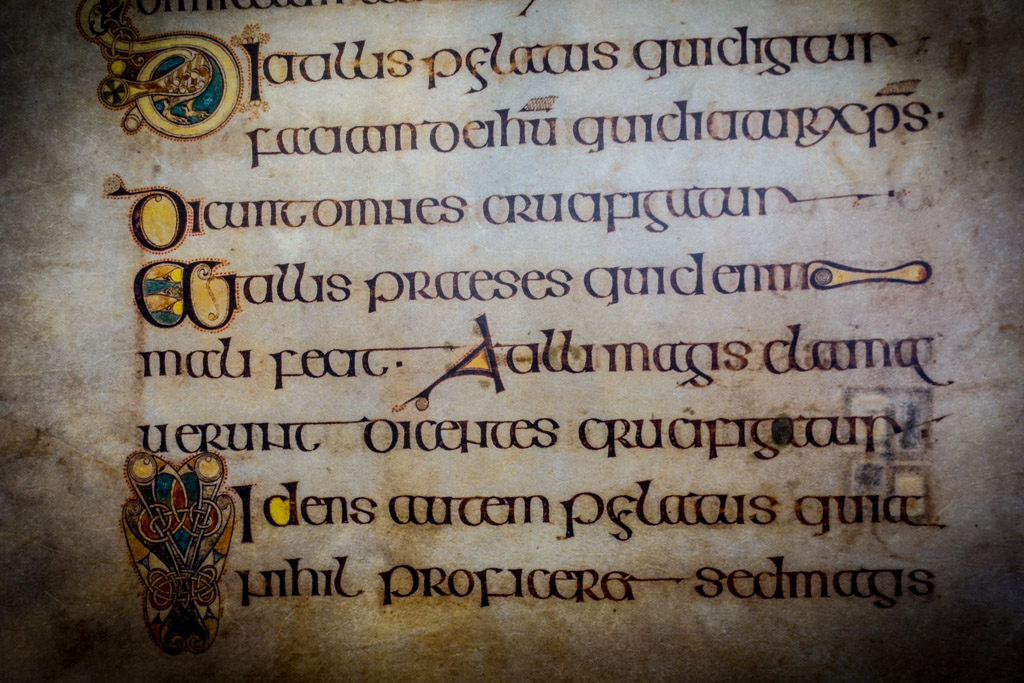 Dicit illis pilatus quid igitur
faciam de ihū qui dicitur xp̄s·
Dicunt omnes crucifigatur
Ait illis praeses quid enim
mali fecit· At illi magis clama
uerunt dicentes crucifigatur
Videns autem pilatus quia
nihil proficeret sed magis